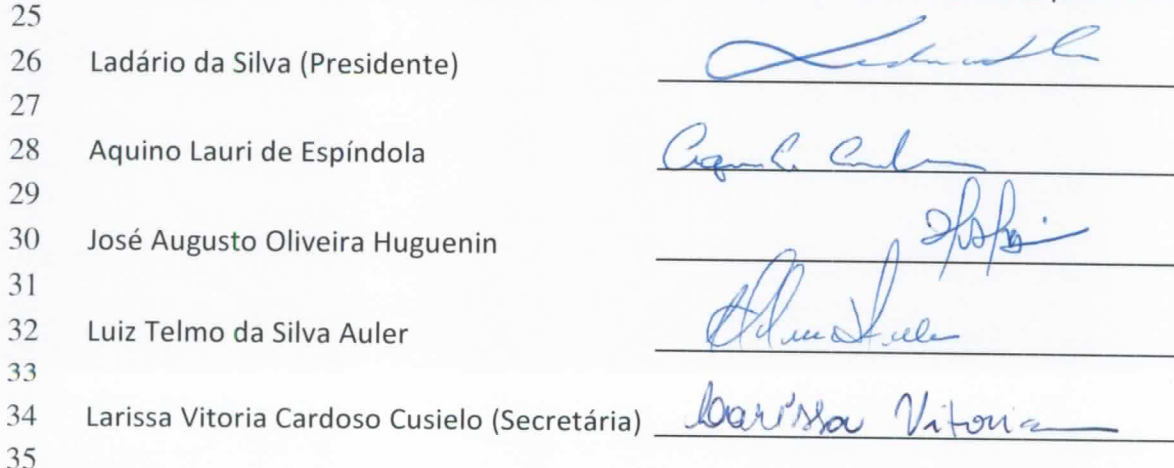 25
26 Ladário da Silva (Presidente)
27
28 Aquino Lauri de Espíndola
29
30 José Augusto Oliveira Huguenin
31
32 Luiz Telmo da Silva Auler
33
34 Larissa Vitoria Cardoso Cusielo (Secretária) Larissa Vitoria
35